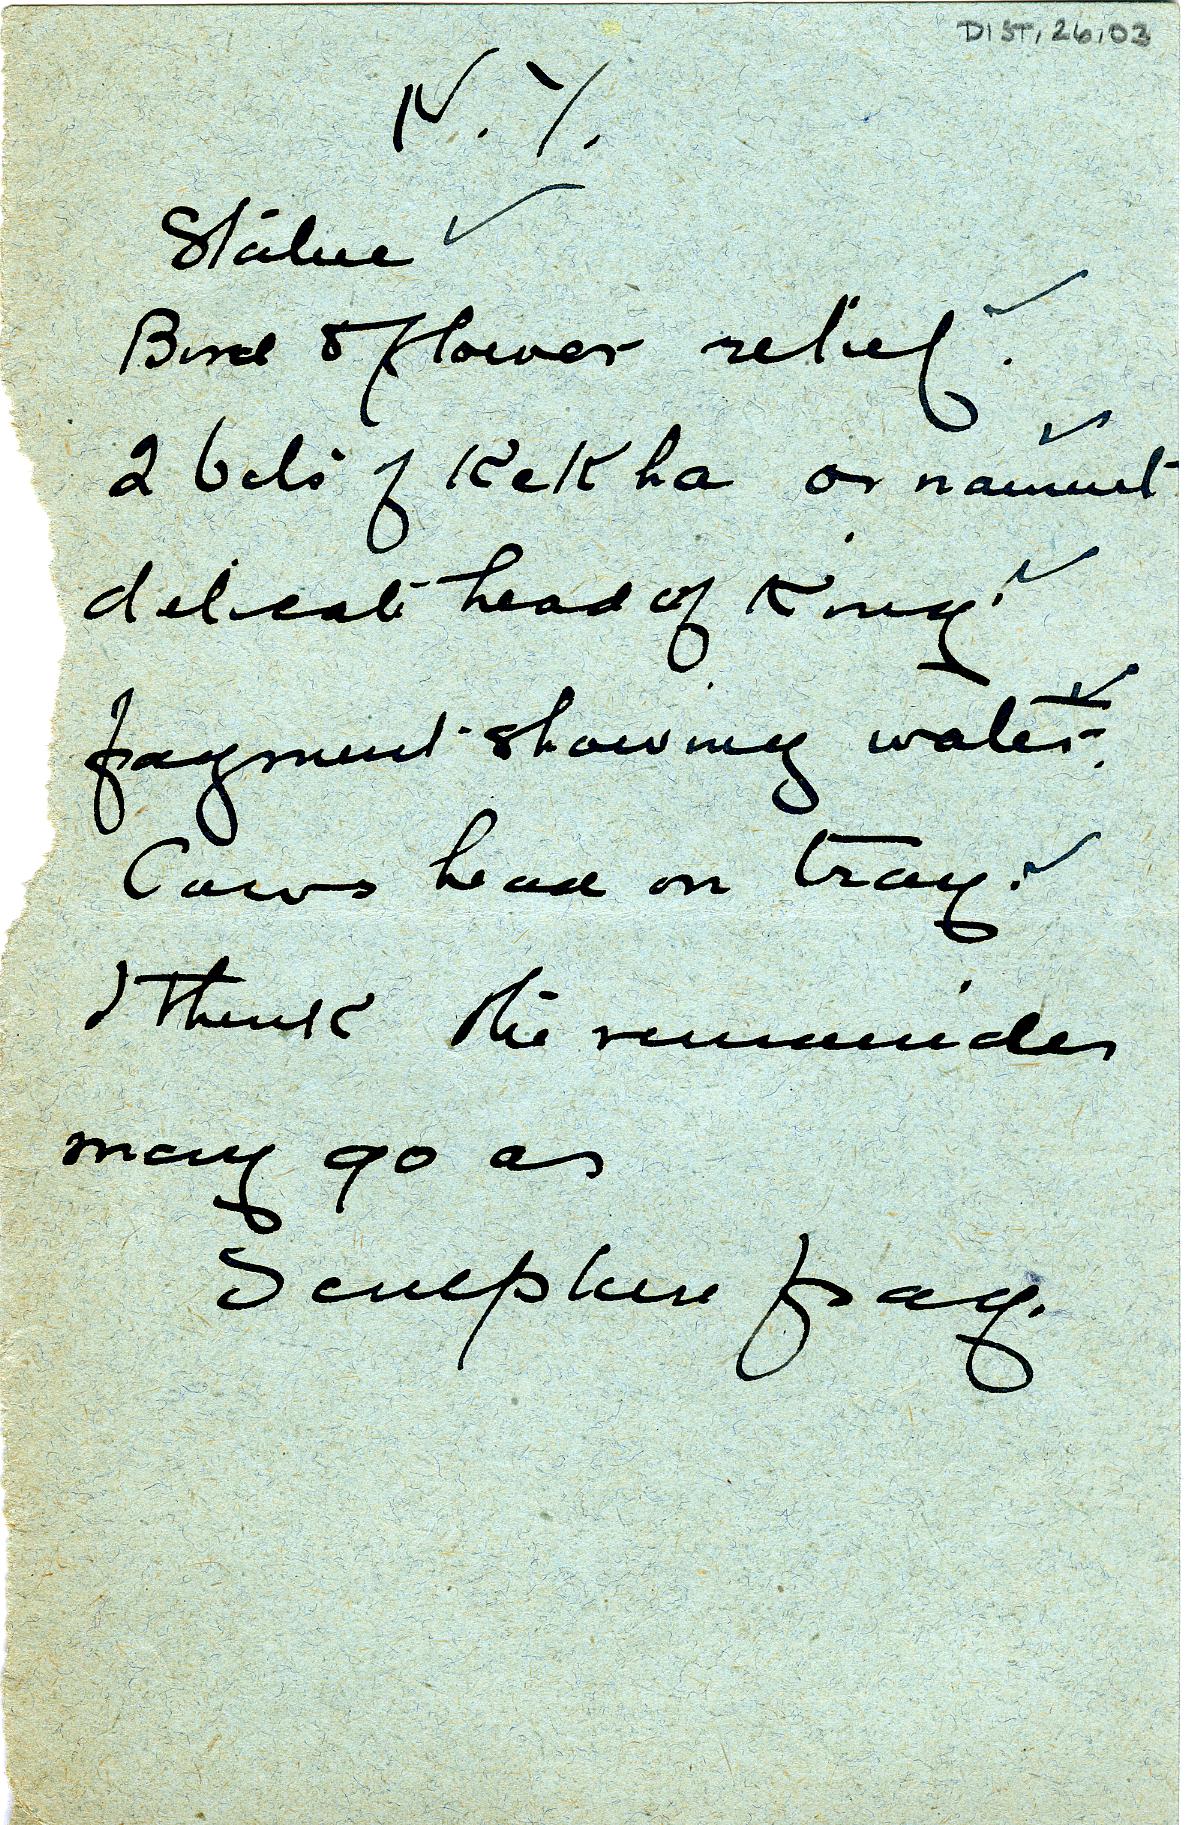 DIST. 26.03
N.Y.
Statue ✓
Bird & flower relief. ✓
2 bits of KeKha ornament ✓
delicate head of King. ✓
fragment showing water. ✓
Cows head on tray. ✓
I think the remainder
may go as
Sculpture frag.